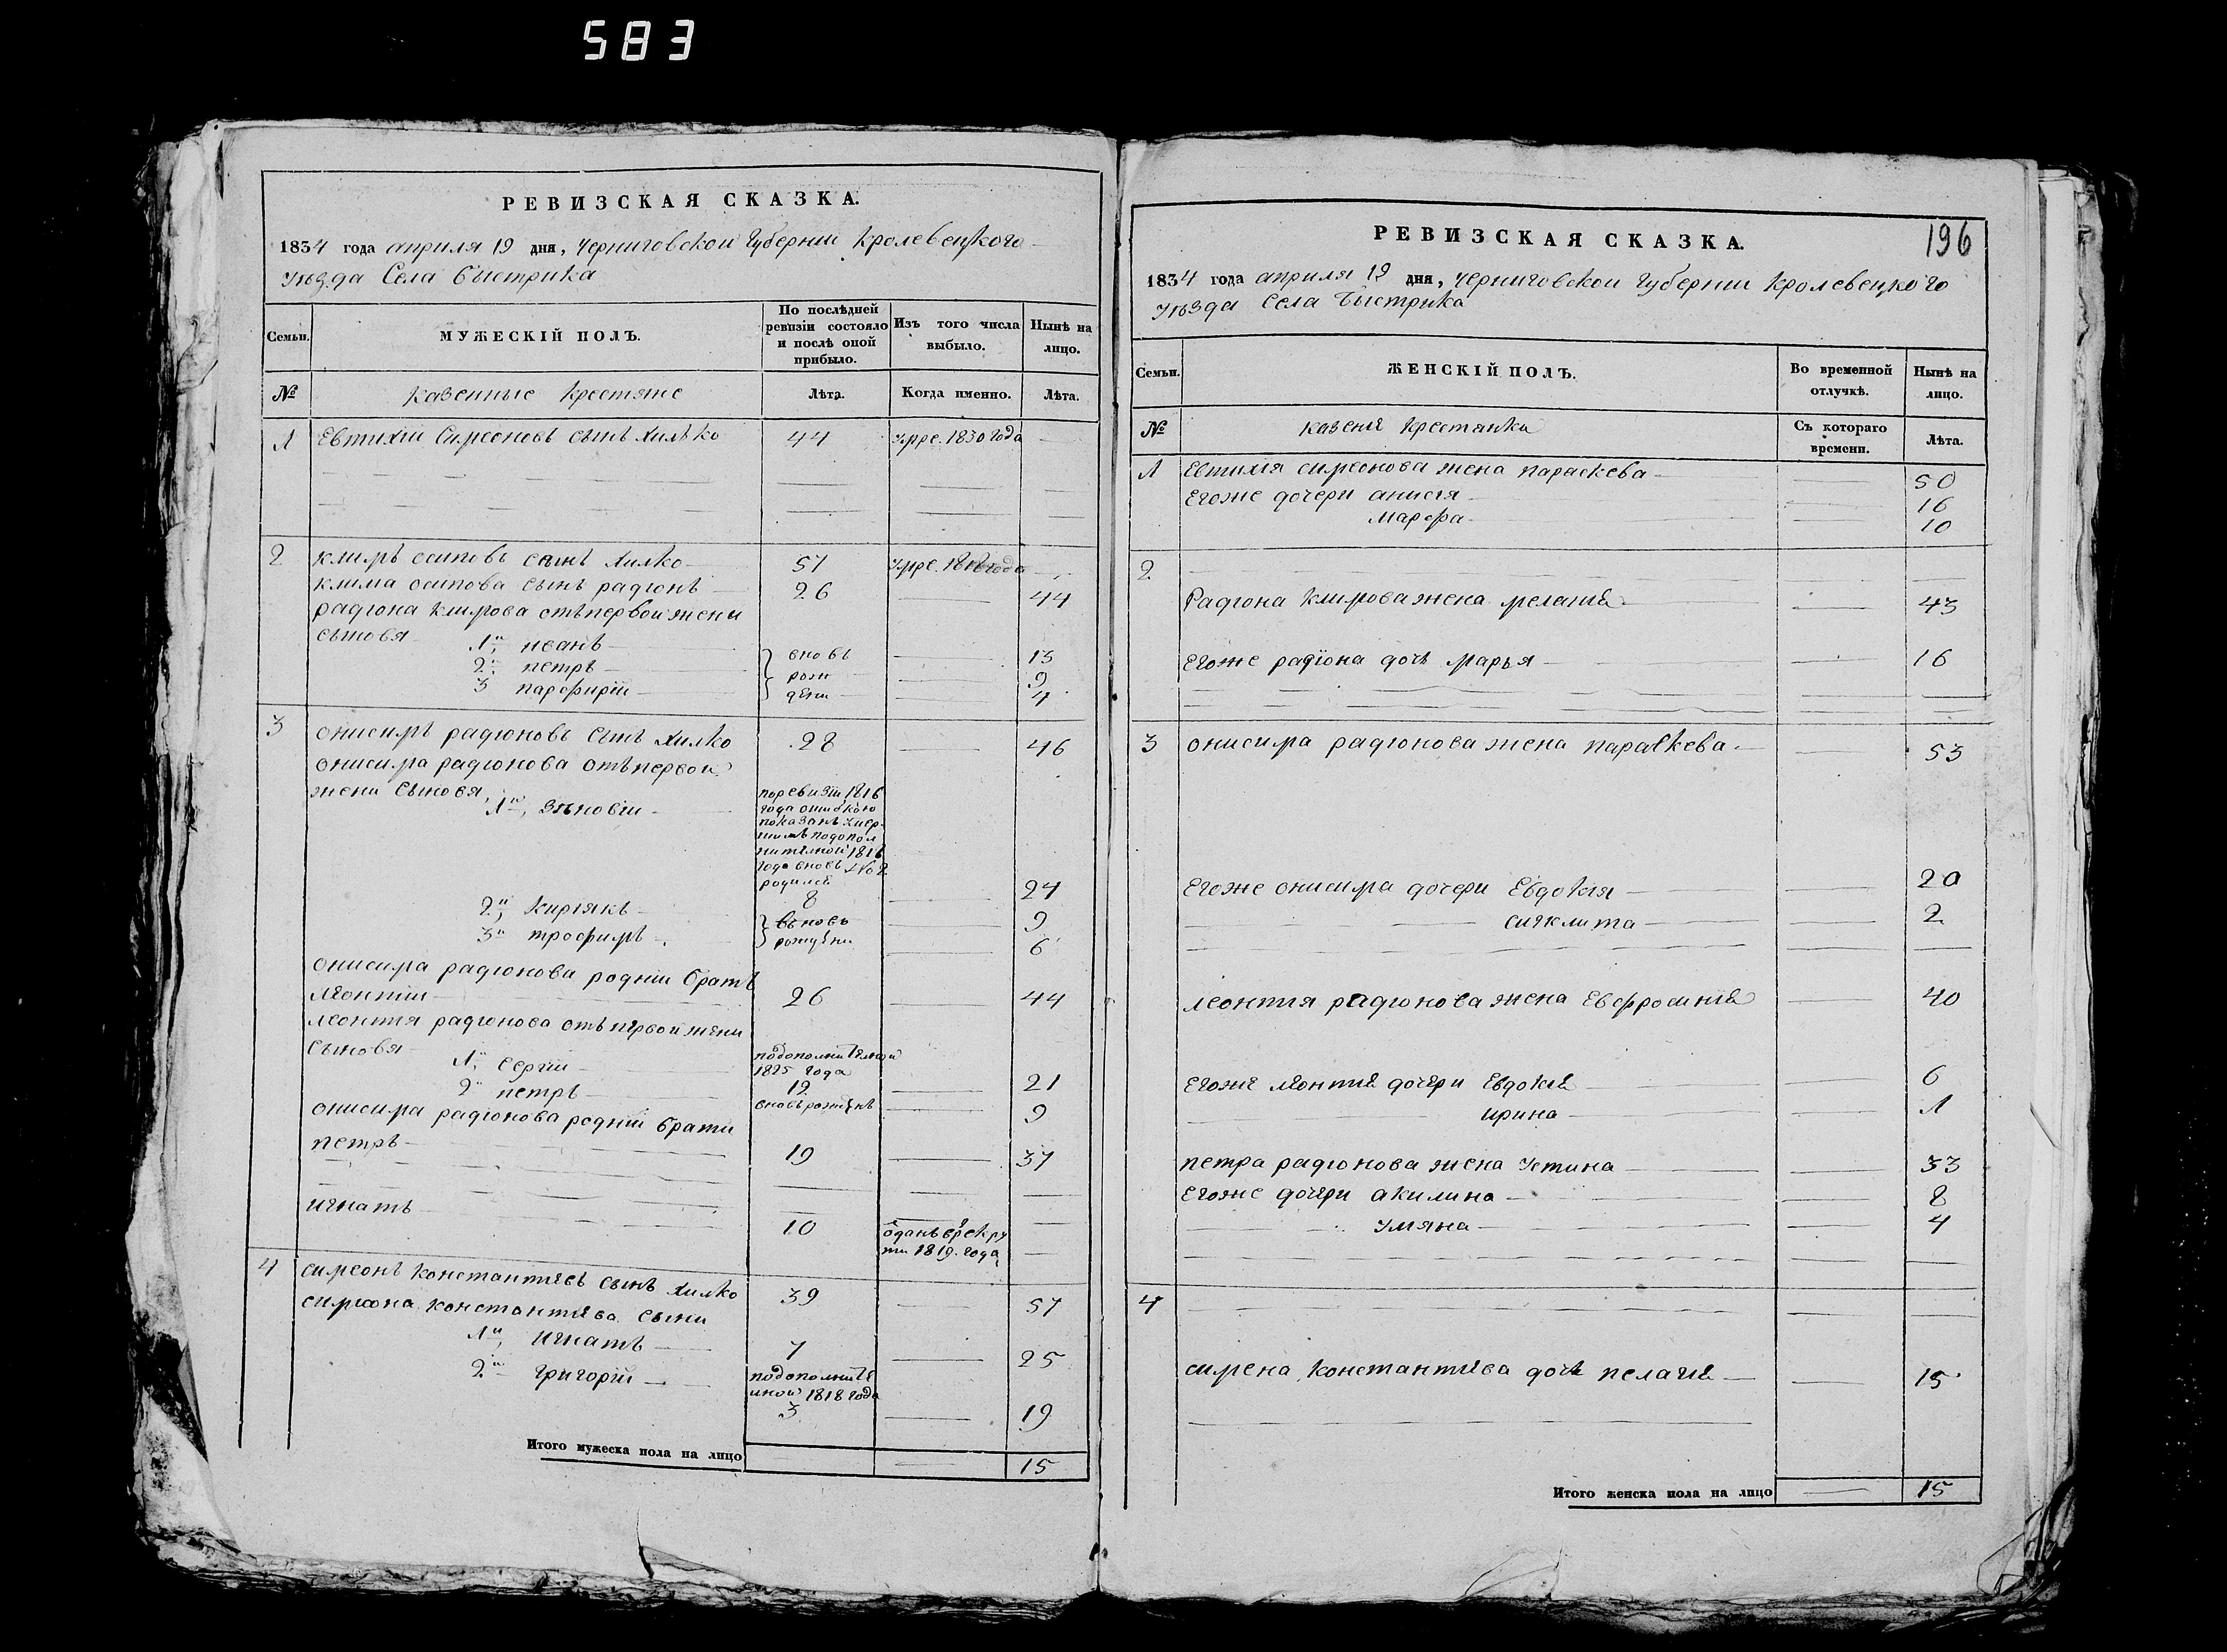 583
РЕВИЗСКАЯ СКАЗКА.
1834 года апреля 19 дня, Черниговской Губернии Кролевецкого
уѣзда Села Быстрика
Семьи. МУЖЕСКІЙ ПОЛЪ. По послѣдней ревизіи состояло и послѣ оной прибыло. Изъ того числа выбыло. Нынѣ на лицо.
№ казенные крестяне Лѣта. Когда именно. Лѣта.
1 Евтихій Симеоновъ сынъ Хилько 44 умре. 1830 года
2 климъ осиповъ сынъ Хилко 57 умре.
клима осипова сынъ радіонъ 26 44
радіона климова отъ первой жени
сыновя 1й иванъ вновь 13
2й петръ рож 9
3 парфирій дени 4
3 онисимъ радіоновъ сынъ Хилко 28 46
онисима радіонова отъ первой
жени сыновя 1й, зѣновій
по ревизіи 1816
года ошибкою
показанъ
подопол
нителной 1816
года вновь №2
родился
8 24
2й, киріякъ вьновь 9
3й трофимъ рождени 6
онисима радіонова родній братъ
Леонтій 26 44
леонтія радіонова отъ первой жени
Сыновя 1й Сергій
подополнителной
1825 года
12 21
2й петръ вновь рожденъ 9
онисима радіонова родній брати
петръ 19 37
игнатъ 10 одань врекру
ти 1819. года
4 симеонъ константіевъ сынъ Хилко 39 57
симеона константіева сыни
1й, Игнатъ 7 25
2й Григорій подополните
лной 1818 года
3 19
Итого мужеска пола на лицо 15
196
РЕВИЗСКАЯ СКАЗКА.
1834 года апреля 19 дня, Черниговской Губернии Кролевецкого
уѣзда Села Быстрика
Семьи. ЖЕНСКІЙ ПОЛЪ. Во временной отлучкѣ. Нынѣ на лицо.
№ казенія крестянки Съ котораго времени. Лѣта.
1 Евтихія симеонова жена параскева 50
Егоже дочери анисія 16
марфа 10
2
Радіона климова жена мелания 43
Егоже радіона дочь марья 16
3 онисима радіонова жена параскева 53
Егоже онисима дочери Евдокія 20
сигклита 2
леонтія радіонова жена Евфросинія 40
Егоже леонтія дочери Евдокія 6
Ирина 1
петра радіонова жена Устина 33
Егоже дочери акилина 8
Уляна 4
4
симеона константіева дочь пелагія 15
Итого женска пола на лицо 15